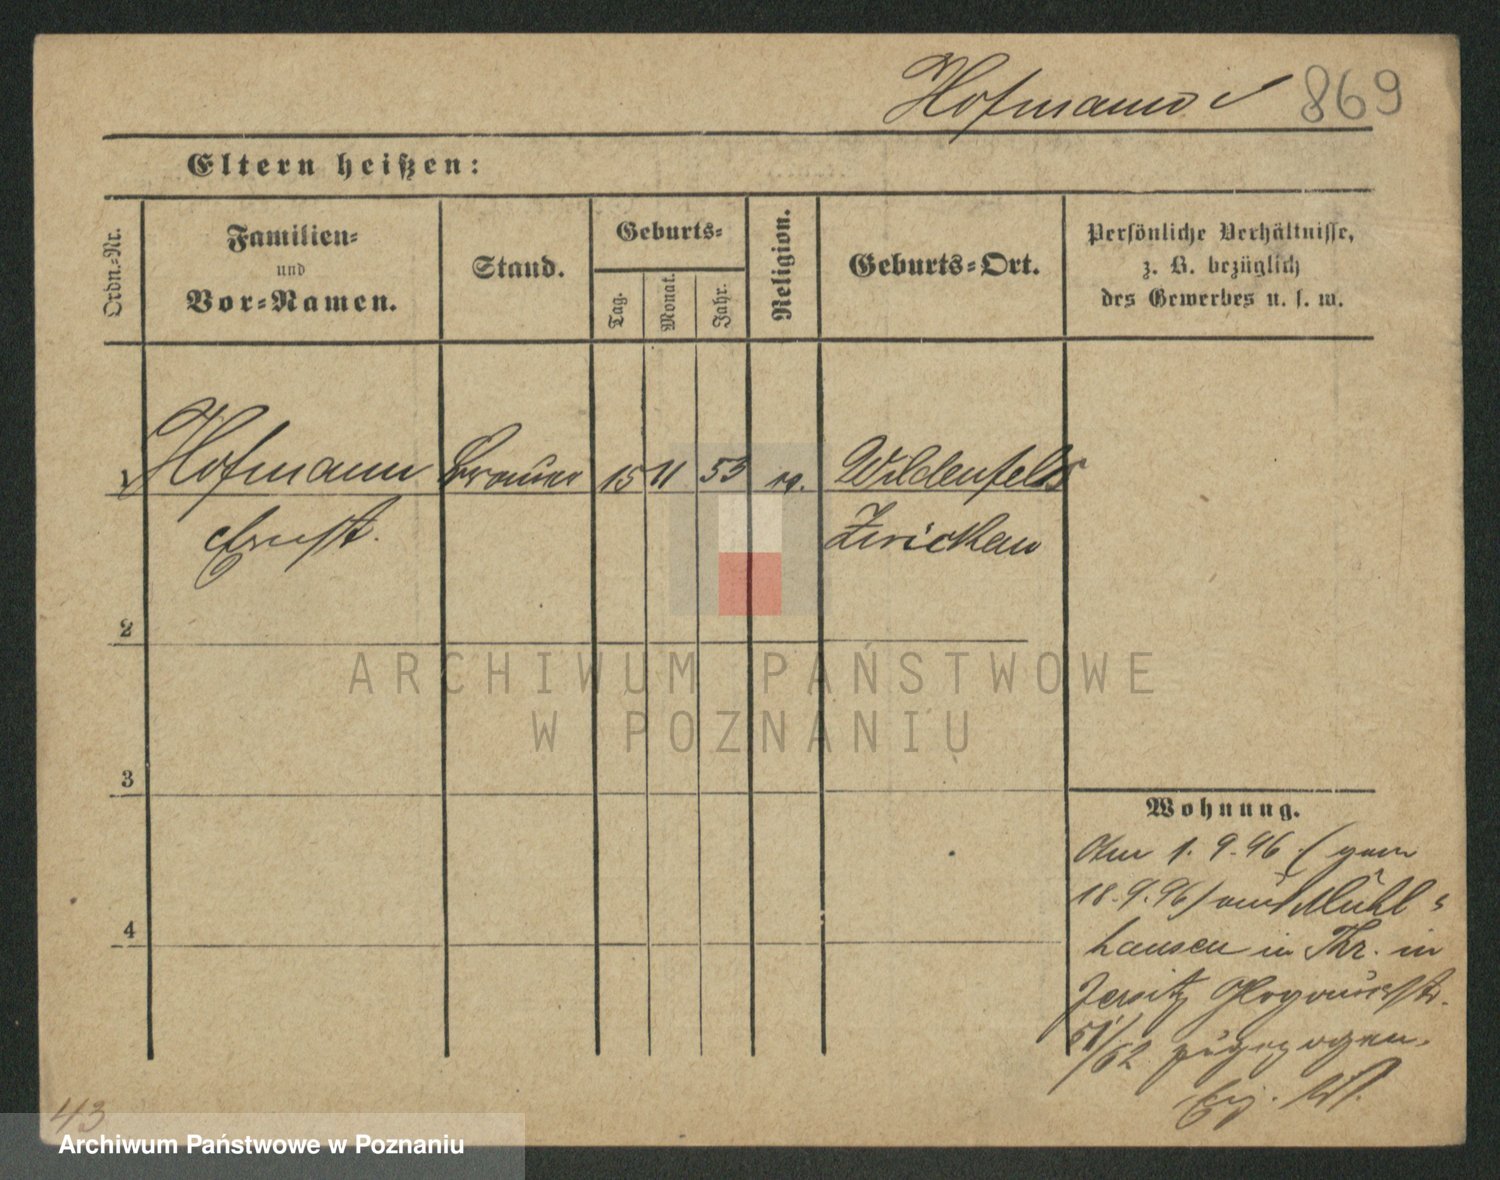 Hofmann 869
Eltern heißen:
Ordn.-Nr.
Familien-
und
Vor-Namen.
Stand.
Geburts-
Tag.
Monat.
Jahr.
Religion.
Geburts-Ort.
Persönliche Verhältnisse,
z. B. bezüglich
des Gewerbes u. s. w.
1 Hofmann Brauer 15 11 53 Wildenfels
Ernst. Zwickau
2
ARCHIWUM PAŃSTWOWE
W POZNANIU
3
4
Wohnung.
Am 1.9.96 (gem
18.9.96) aus Mühl-
hausen in Thr. in
Jersitz Glogauerstr.
61/62 zugezogen.
43
Archiwum Państwowe w Poznaniu